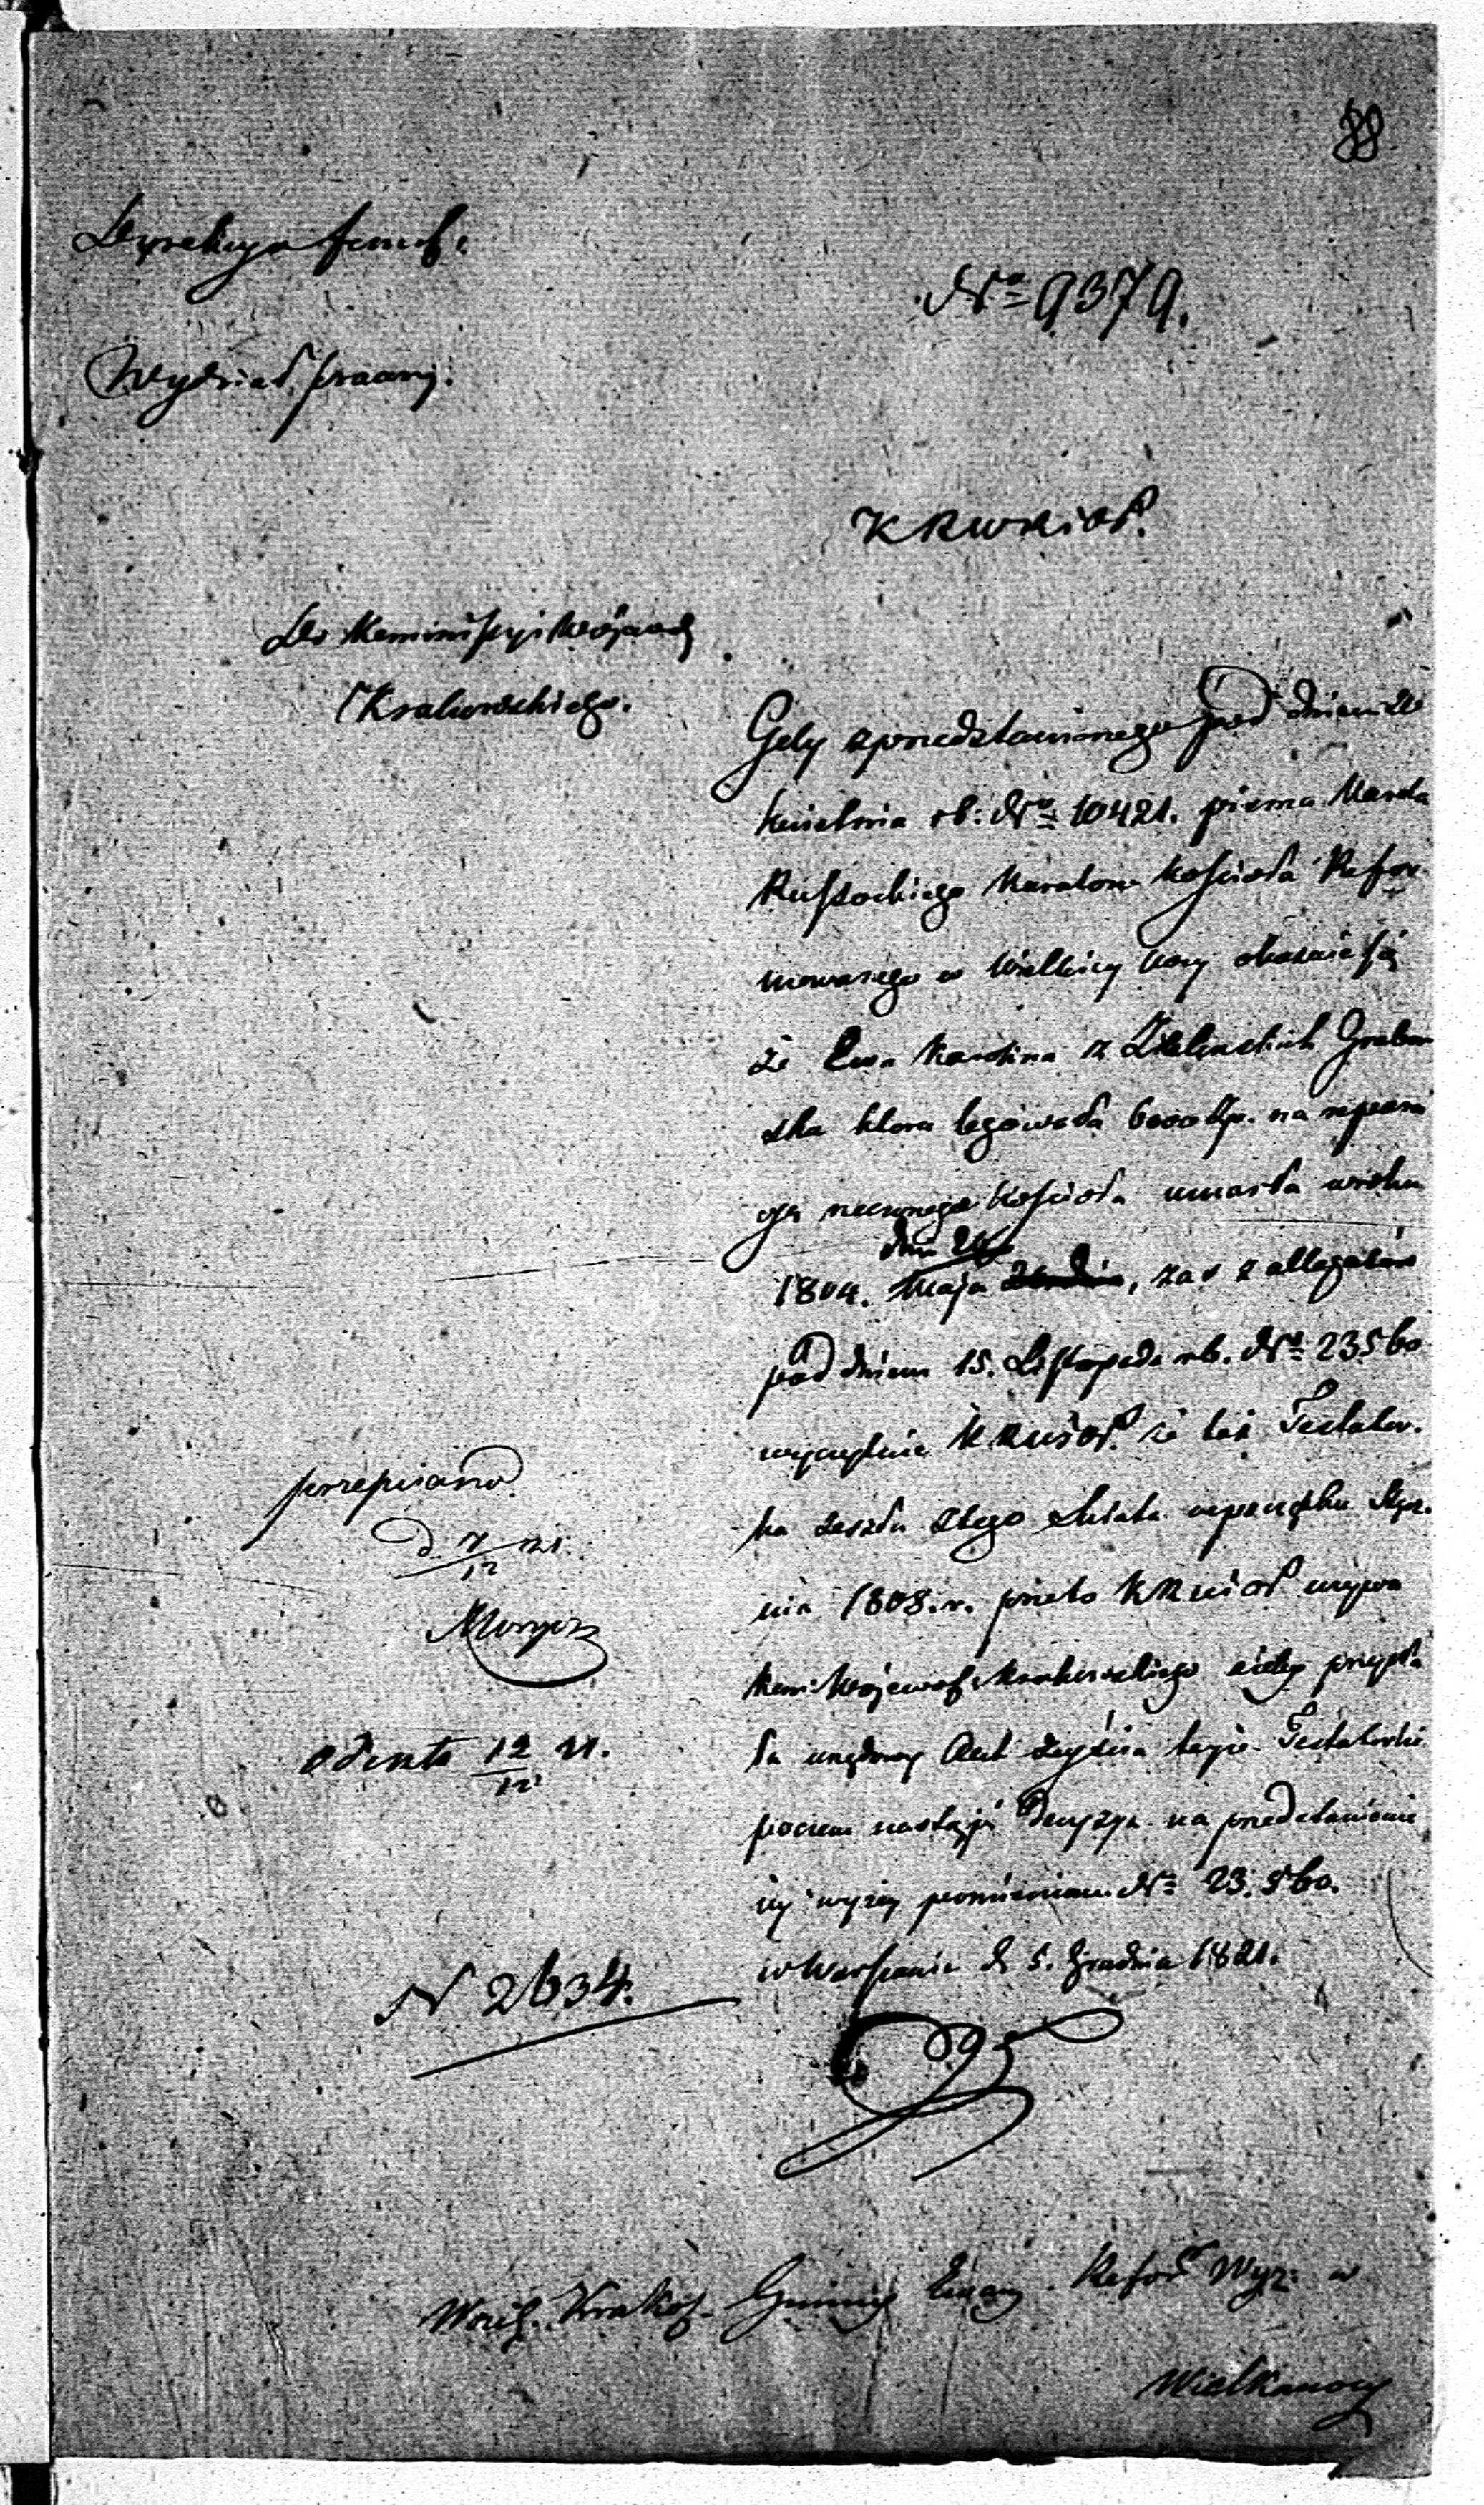 88
Dyrekcya
Nº 9379.
Wydział prawny.
K R W R i O P.
Do Kommissyi Wojewód
Krakowskiego.
Gdy z przedstawionego pod dniem 20
Kwietnia rb: Nº 10421. pisma Karola
Russockiego Kuratora Kościoła Refor
mowanego w Wielkiey nocy okazuie się
że Ewa Karolina z Zielenskich Grabow
ska ktora legowała 6000 Zp. na repera
cyą rzeczonego Kościoła umarła w roku
dnia 24
1804. Maja, zaś z allegatów
pod dniem 15. Listopada rb. Nº 23560
wyczytuie K R W i O P. że taż Testator-
ka zeszła z tego świata w początku Stycz-
nia 1808. r. przeto K R W i O P wzywa
Kom: Wojewodz: Krakowskiego ażeby przysła
ła urzędowy Akt zeyścia teyże Testatorki
poczem nastąpi Decyzya na przedstawienie
iéy wyżey pomienione Nº 23.560.
w Warszawie d. 5. Grudnia 1821.
przepisano
d. 7/12 21.
Morycz
oddano 12/12 21.
N 2634.
Woiew. Krakow. Gminy Ewang. Refor. Wyz: w
Wielkanocy